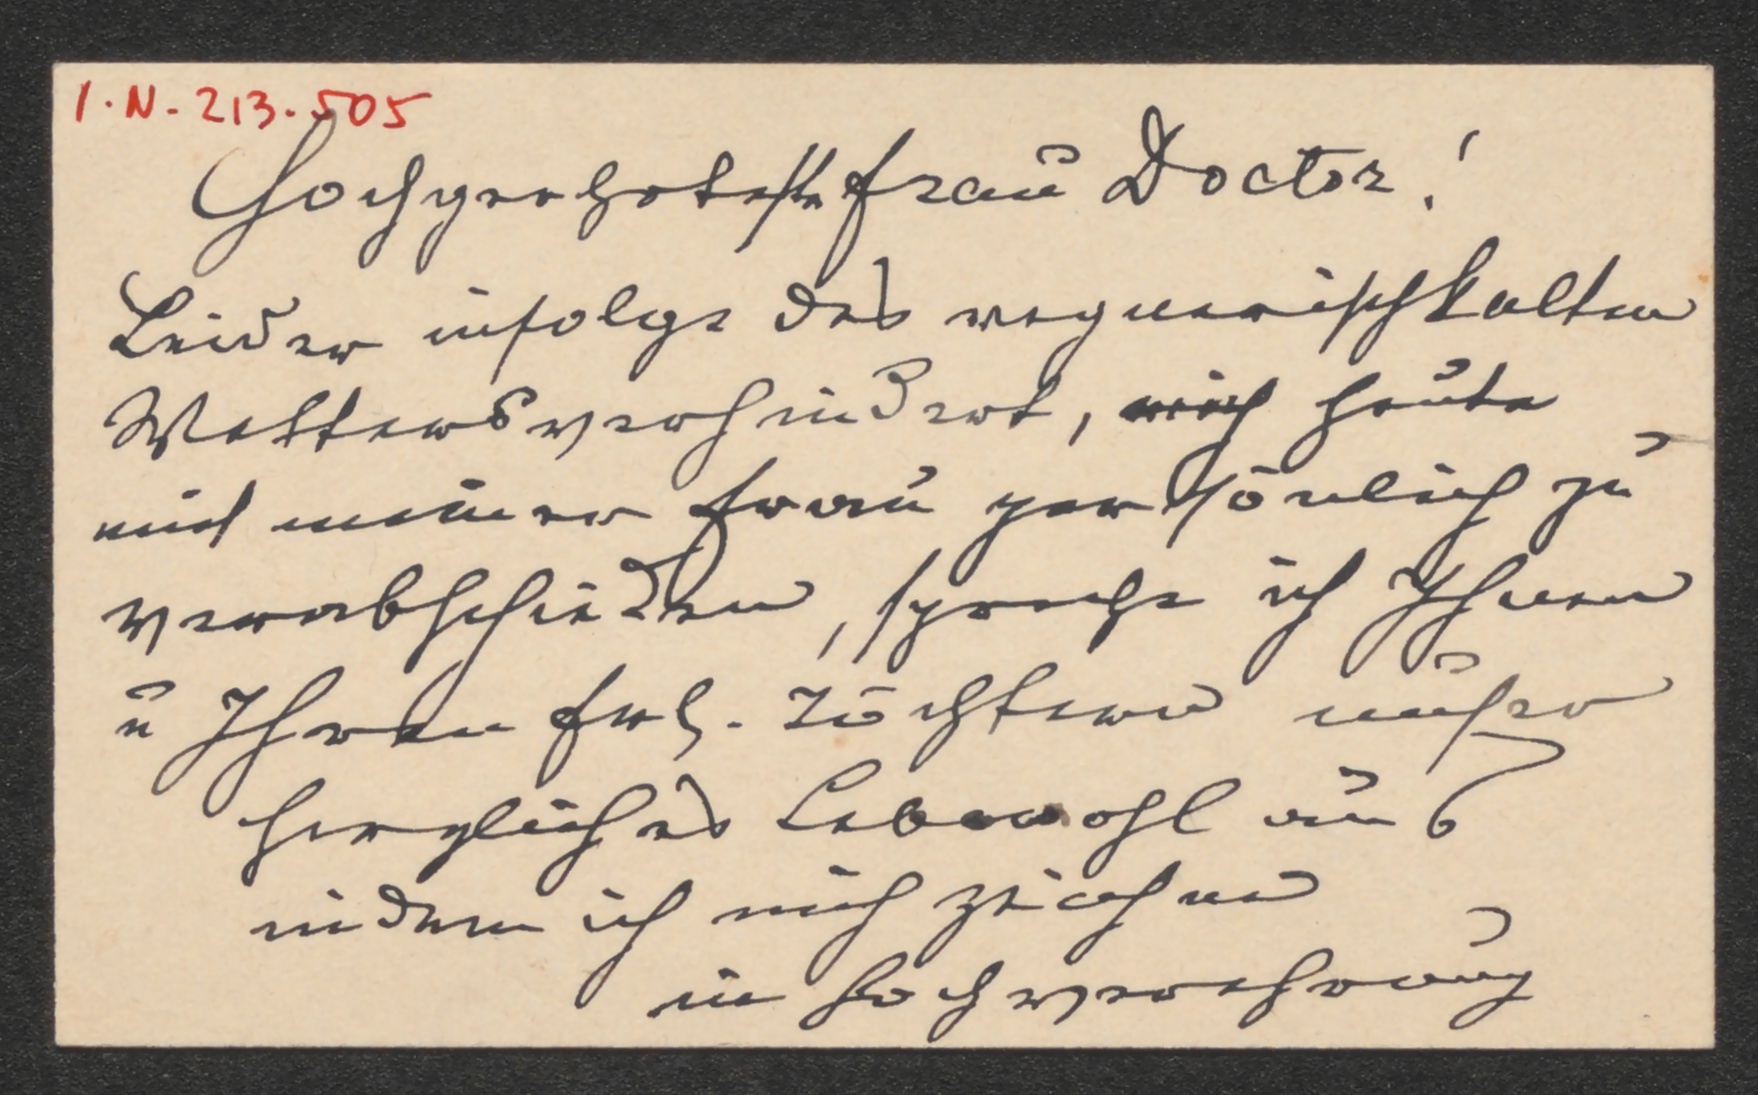 I.N. 213.505
Hochgeehrteste Frau Doctor!
Leider infolge des regnerischkalten
Wetters verhindert, mich heute
mit meiner Frau persönlich zu
verabschieden, spreche ich Ihnen
u Ihren Frl. Töchtern unser
herzliches Lebewohl aus
indem ich mich zeichne
in Hochverehrung